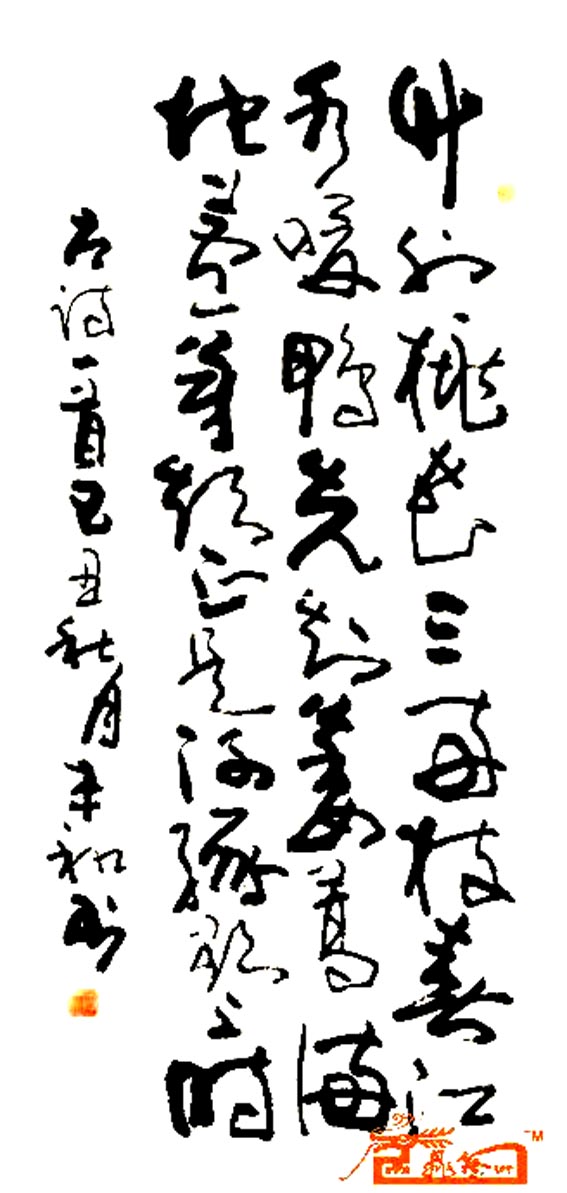 竹外桃花三两枝春江
水暖鸭先知蒌蒿满
地芦芽短正是河豚欲上时
古诗一首己丑秋月和书